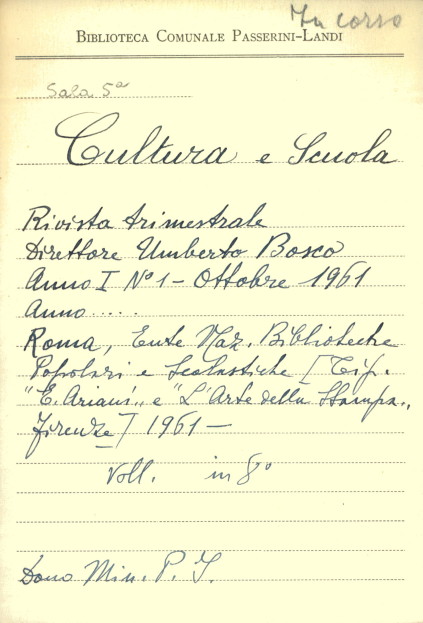 In corso
BIBLIOTECA COMUNALE PASSERINI-LANDI
Sala 5a
Cultura e Scuola
Rivista trimestrale
Direttore Umberto Bosco
Anno I No 1 - Ottobre 1961
Anno .....
Roma, Ente Naz. Biblioteche
Popolari e Scolastiche [Tip.
"E. Ariani" e "L'Arte della Stampa",
Firenze] 1961 —
Voll. in 8o
Dono Min. P. I.